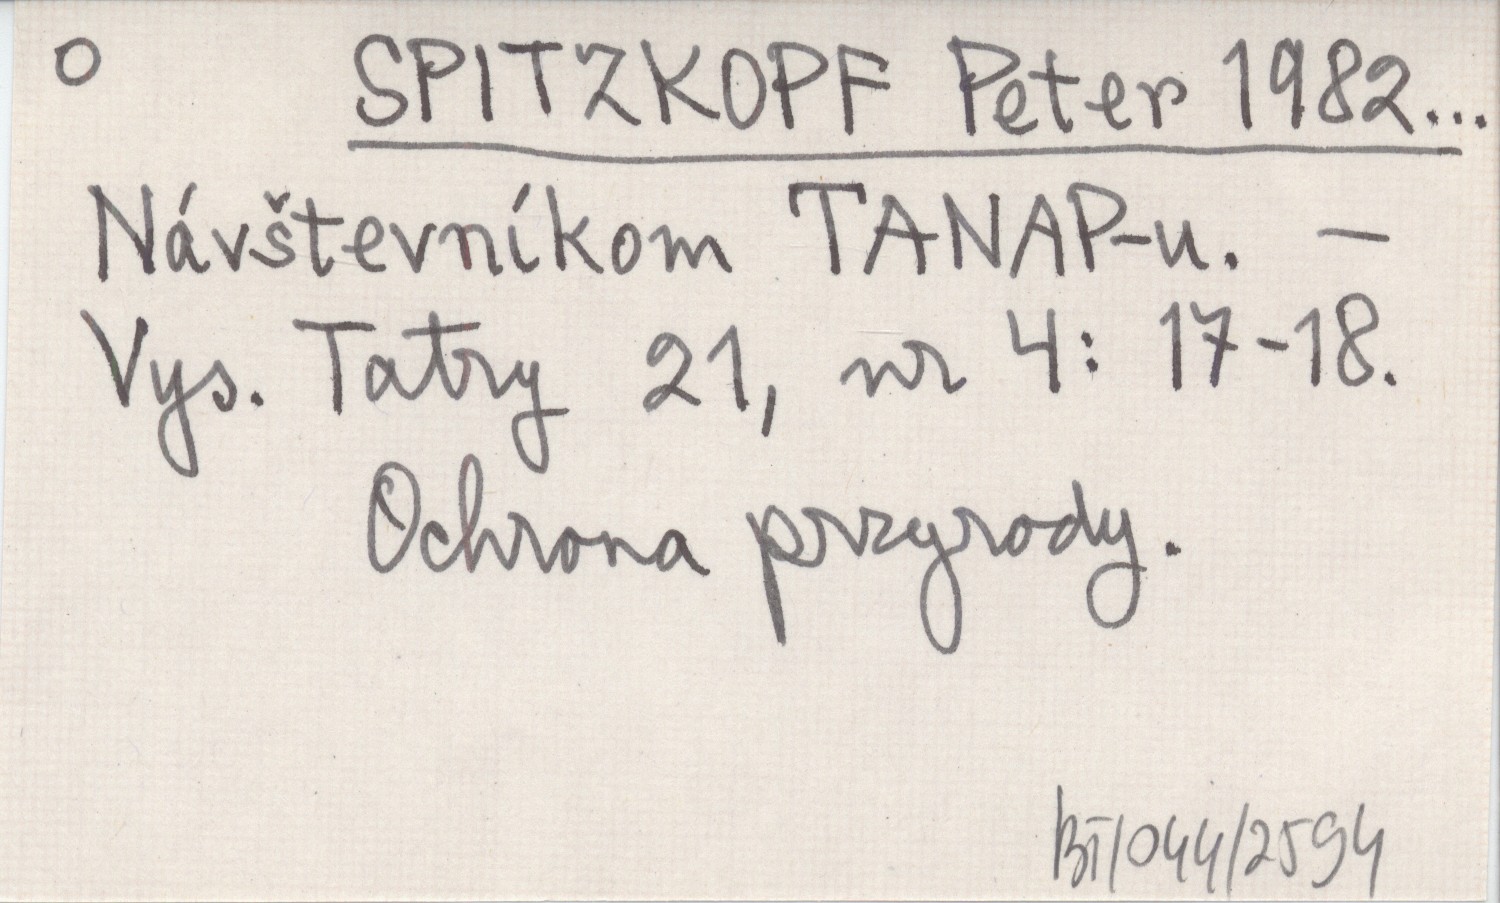 O SPITZKOPF Peter 1982...
Návštevníkom TANAP-u. —
Vys. Tatry 21, nr 4: 17-18.
Ochrona przyrody.
BT/044/2594